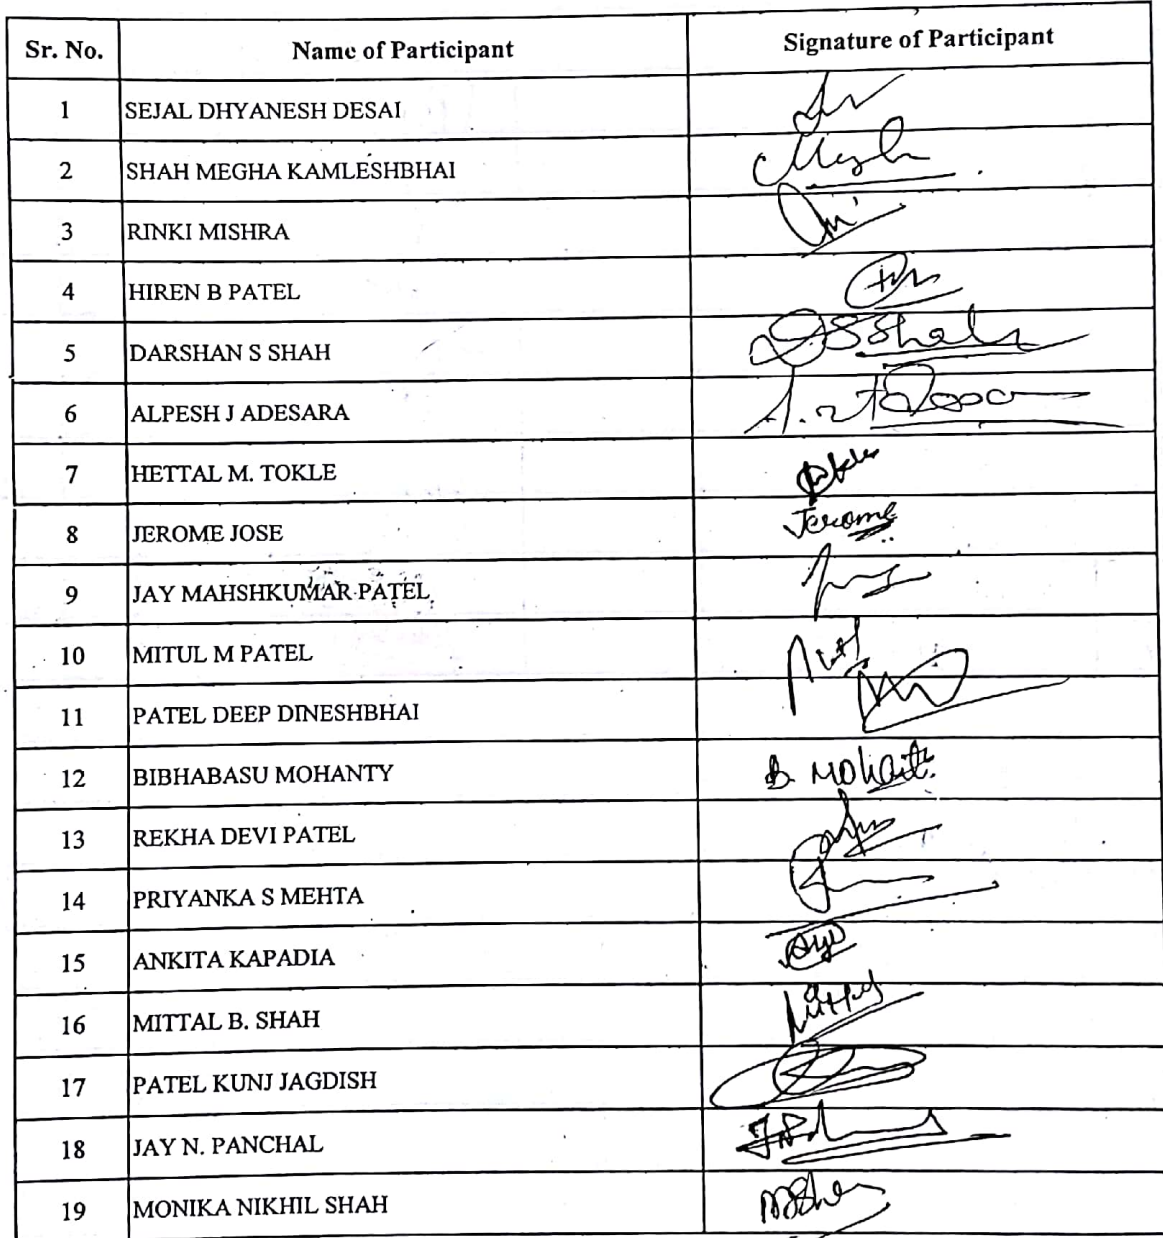 Sr. No. Name of Participant Signature of Participant
1 SEJAL DHYANESH DESAI
2 SHAH MEGHA KAMLESHBHAI Megh
3 RINKI MISHRA
4 HIREN B PATEL
5 DARSHAN S SHAH DSShah
6 ALPESH J ADESARA
7 HETTAL M. TOKLE
8 JEROME JOSE Jerome
9 JAY MAHSHKUMAR PATEL
10 MITUL M PATEL
11 PATEL DEEP DINESHBHAI
12 BIBHABASU MOHANTY B. Mohanty
13 REKHA DEVI PATEL
14 PRIYANKA S MEHTA
15 ANKITA KAPADIA
16 MITTAL B. SHAH
17 PATEL KUNJ JAGDISH
18 JAY N. PANCHAL
19 MONIKA NIKHIL SHAH